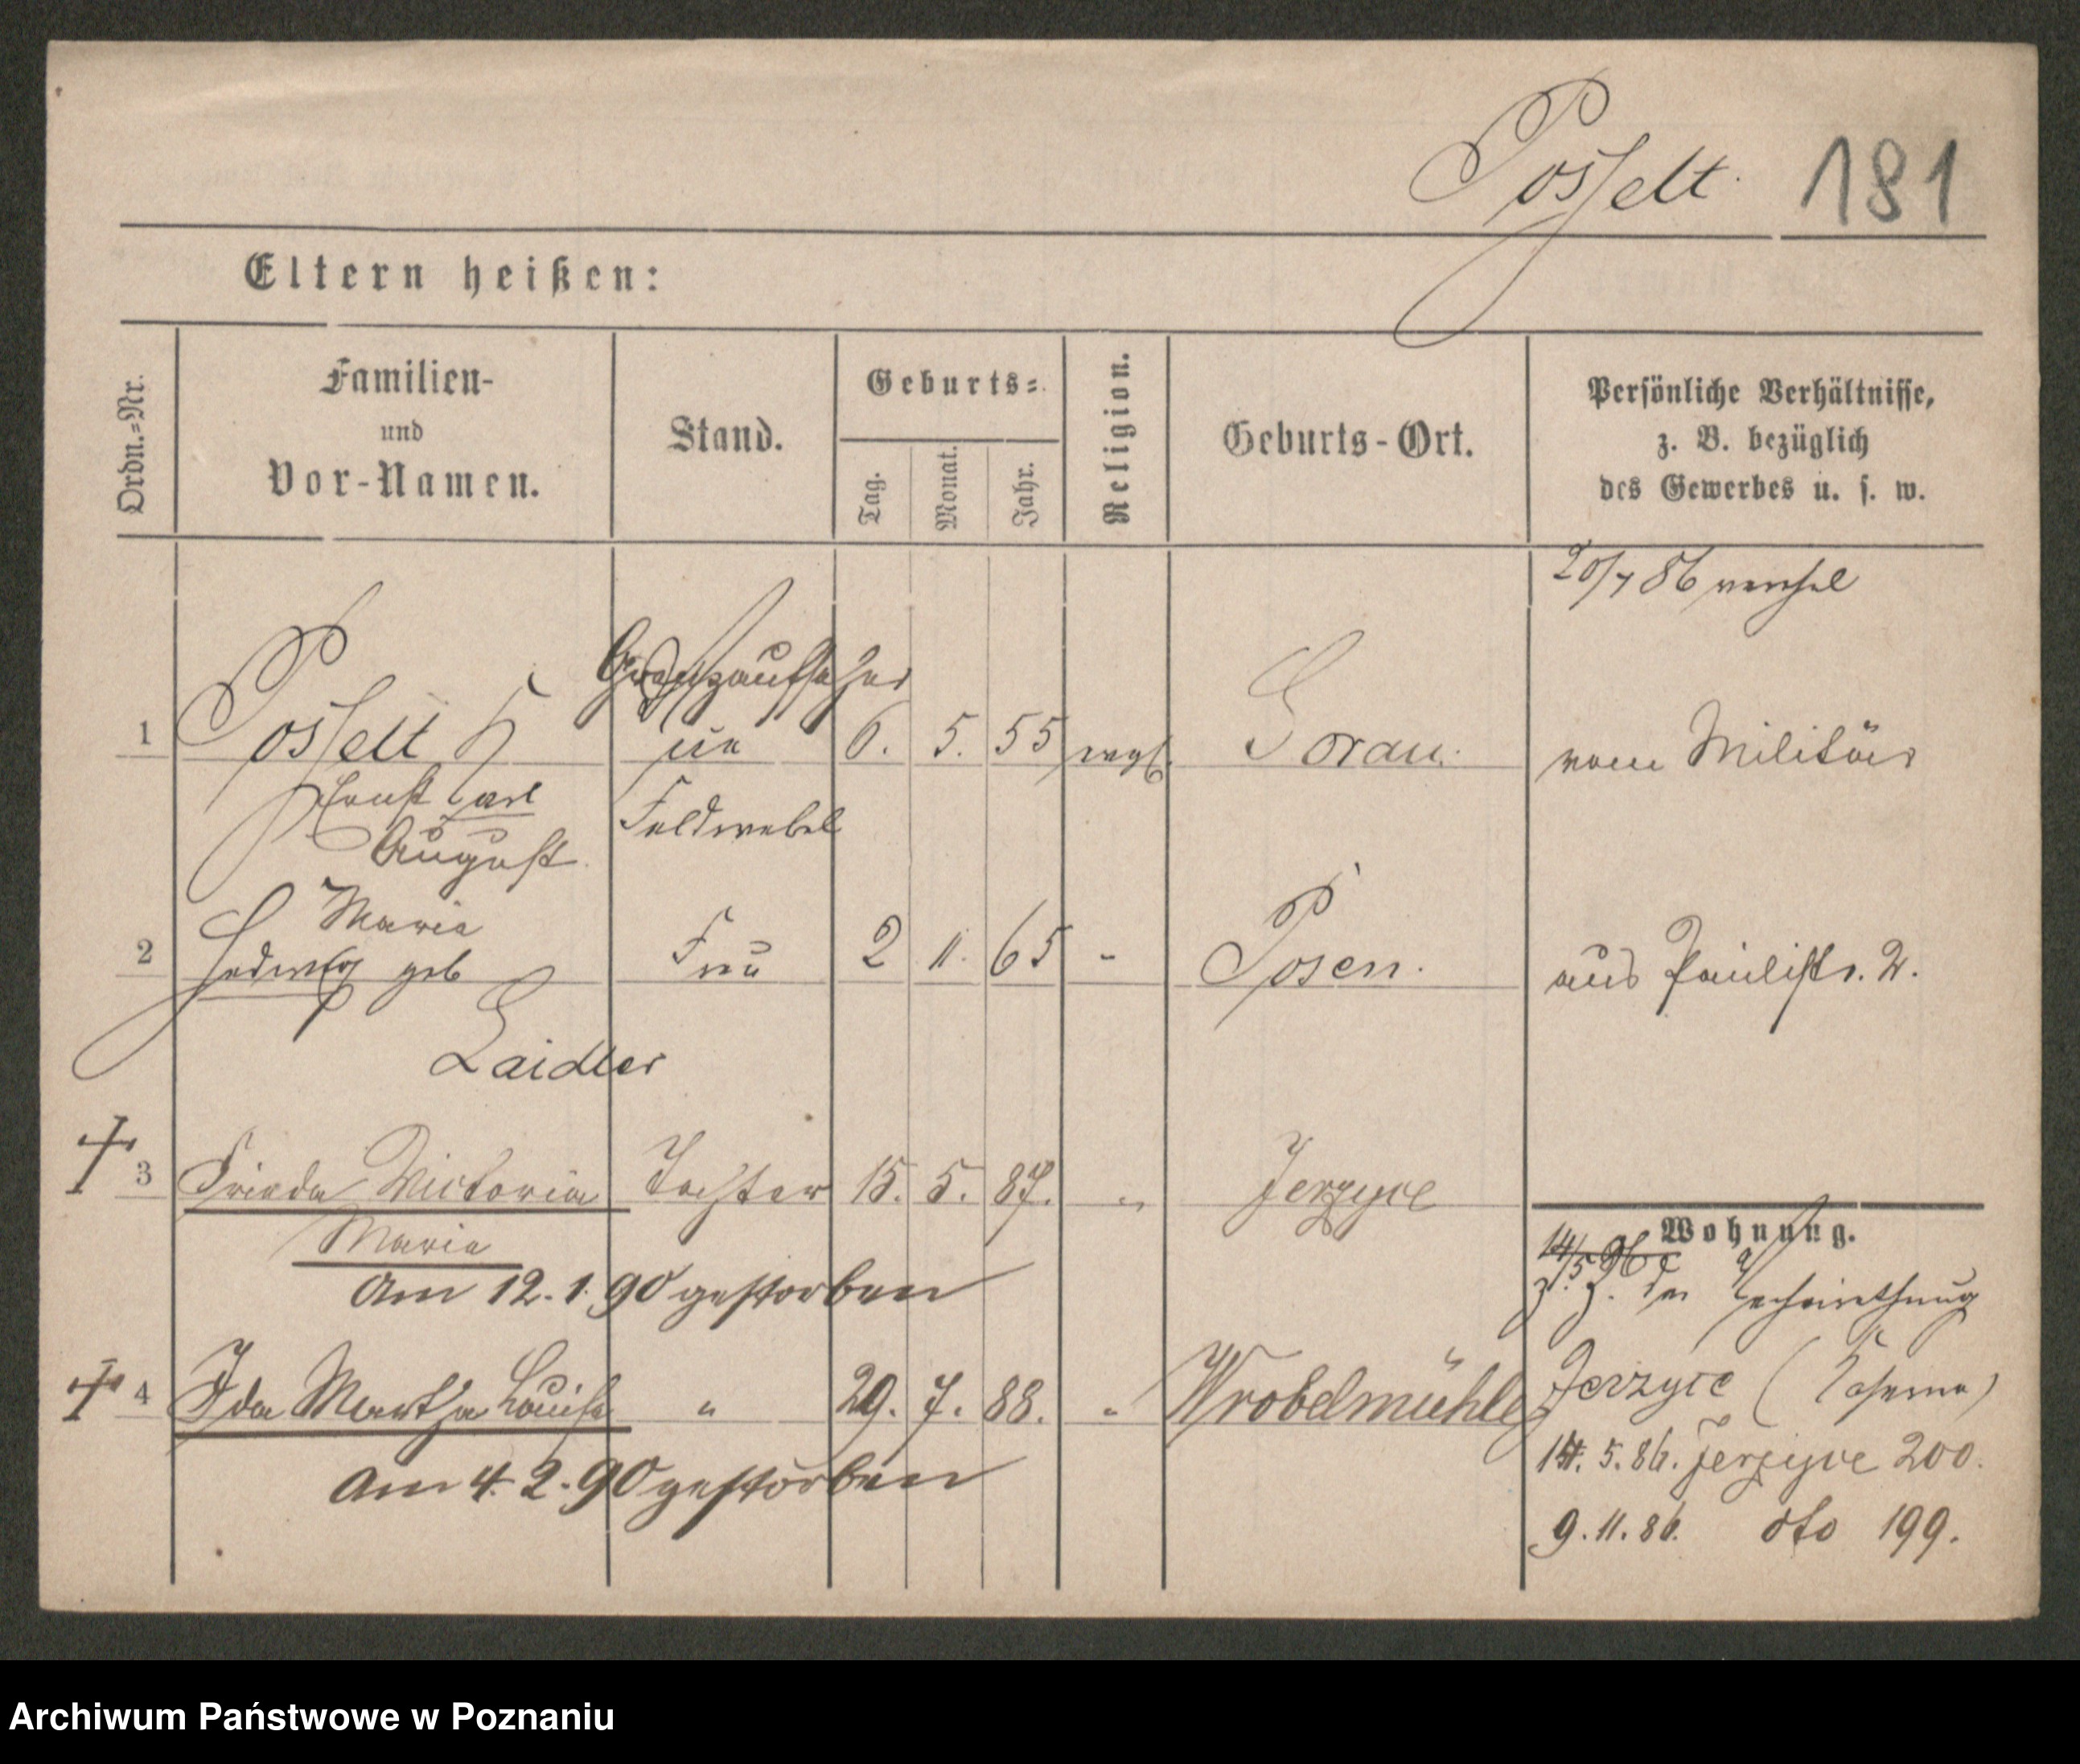 Posselt. 181
Eltern heißen:
Ordn.=Nr.
Familien-
und
Vor-Namen.
Stand.
Geburts=
Tag.
Monat.
Jahr.
Religion.
Geburts-Ort.
Persönliche Verhältnisse,
z. B. bezüglich
des Gewerbes u. s. w.
20/7 86
Grenzaufseher
1 Posselt 6. 5. 55 evgl. Sorau. vom Militär
Ernst Carl Feldwebel
August
Maria
2 Hedwig geb Frau 2 11. 65 " Posen. aus Paulistr. 2.
Laidler
3 Frieda Victoria Tochter 15. 5. 87. " Jerzyce
Maria
Wohnung.
14/5 86
am 12.1.90 gestorben
z. Z. der Verheirathung
4 Ida Martha Louise " 29. 7. 88. " Wrobelmühle
Jerzyce (Kaserne)
am 4.2.90 gestorben
14. 5. 86. Jerzyce 200.
9. 11. 86. dto 199.
Archiwum Państwowe w Poznaniu